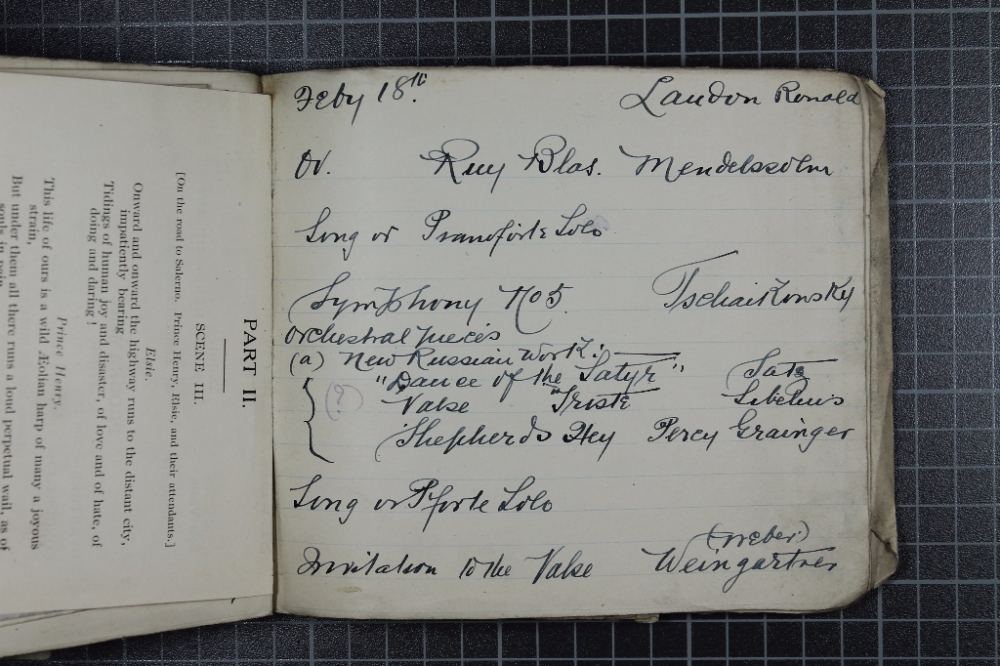 PART II.
SCENE III.
[On the road to Salerno. Prince Henry, Elsie, and their attendants.]
Elsie.
Onward and onward the highway runs to the distant city,
impatiently bearing
Tidings of human joy and disaster, of love and of hate, of
doing and daring!
Prince Henry.
This life of ours is a wild Æolian harp of many a joyous
strain,
But under them all there runs a loud perpetual wail, as of
souls in pain.
Feby 18th. Landon Ronald
Ov. Ruy Blas. Mendelssohn
Song or Pianoforte Solo
Symphony No 5. Tschaikowsky
Orchestral pieces
(a) New Russian Work:
"Dance of the Satyr" Satz
Valse "Triste Sibelius
Shepherds Hey Percy Grainger
Song or Pforte Solo
(Weber)
Invitation to the Valse Weingartner